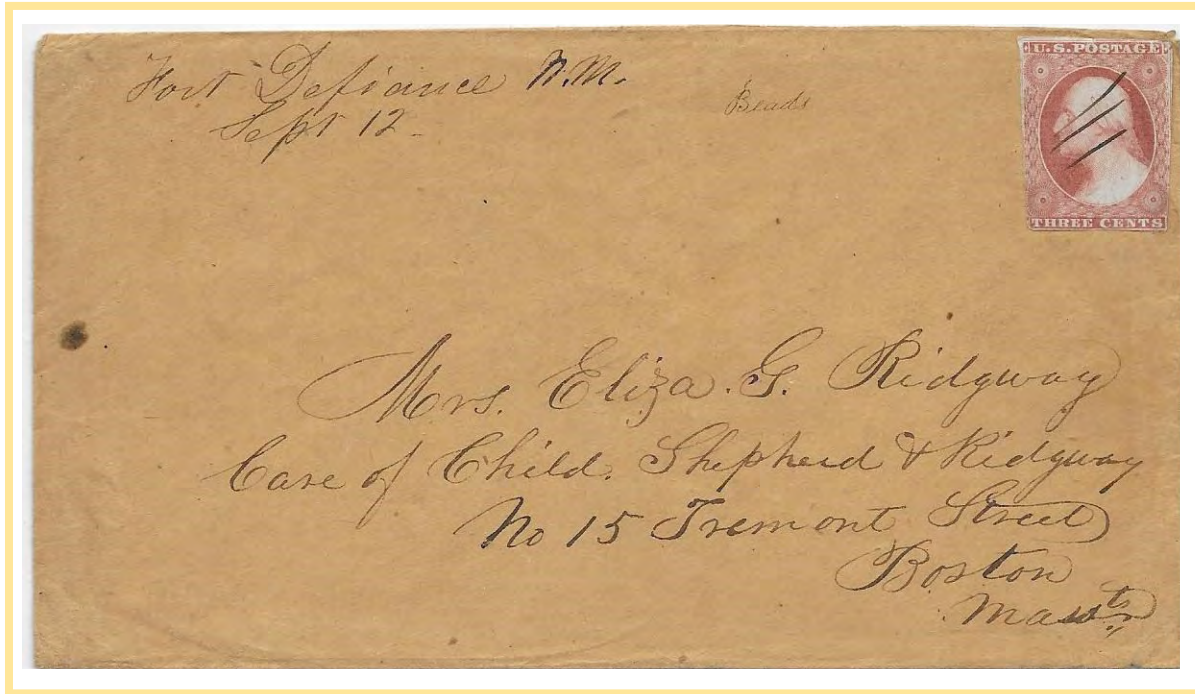 Fort Defiance N.M.
Sept 12
Beads
U.S. POSTAGE
THREE CENTS
Mrs. Eliza. G. Ridgway
Care of Child. Shepherd & Ridgway
No 15 Tremont Street
Boston